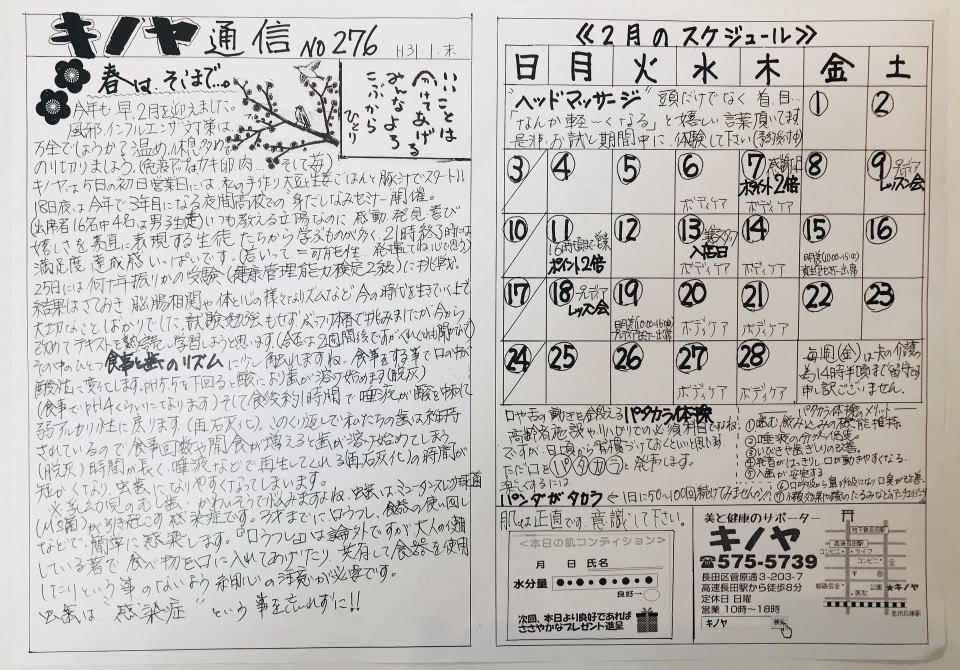 キノヤ 通信 NO 276 H31.1.末
春は、そこまで…。
いいことは
分けてあげる
みんなよろ
こぶから
ひとり
今年も早、2月を迎えました。
風邪、インフルエンザ対策は
万全でしょうか？温め、休息、予めで
のりけりましょう。
キノヤは5日の初日営業日には、私の手作り大豆と生姜ごはんと豚汁でスタート!!
18日夜は今年で3年目になる夜間高校での身だしなみセミナー開催。
(出席者16名中4名は男子生徒)いつも教える立場なのに感動、発見、喜び
嬉しさを素直に表現する生徒たちから学ぶものが多く、21時終了時は
満足度、達成感いっぱいです。
25日には何十年振りかの受験(健康管理能力検定2級)に挑戦。
結果はさておき、脳腸相関や体と心の様々なリズムなど今の時代を生きていく上で
大切なことばかりでした。試験勉強もせずぶっつけ本番で挑みましたが今から
改めてテキストを熟読し学習しようと思います
その中のひとつ食事と歯のリズムに少し触れますね。食事をする事で口の中が
酸性に変化します。PH5.5を下回ると酸により歯が溶け始めます(脱灰)
(食事でPH4くらいになります)そして食後約1時間で唾液が酸を中和して
弱アルカリ性に戻ります(再石灰化)。このくり返しで私たちの歯は維持
されているので食事回数や間食が増えると歯が溶け始めてしまう
(脱灰)時間が長く、唾液などで再生してくれる(再石灰化)の時間が
短かくなり、虫歯になりやすくなってしまいます。
など)で、簡単に感染します。「口うつし」は論外ですが、大人の口に
している箸で食べ物を口に入れてあげたり、共有して食器を使用
したりという事のないよう周囲の注意が必要です。
虫歯は、"感染症"という事を忘れずに!!
≪2月のスケジュール≫
日 月 火 水 木 金 土
"ヘッドマッサージ" 頭だけでなく、首、目…
「なんか軽〜くなる」と嬉しい言葉頂いてます
是非、お試し期間中に、体験して下さい(予約受付中)
① ②
③ ④ ⑤ ⑥ ボディケア ⑦ 感謝日 ポイント2倍 ボディケア ⑧ ⑨ レッスン会
⑩ ⑪ ポイント2倍 ⑫ ⑬ 入店日 ボディケア ⑭ ボディケア ⑮ ⑯
⑰ ⑱ レッスン会 ⑲ ⑳ ボディケア ㉑ ボディケア ㉒ ㉓
㉔ ㉕ ㉖ ㉗ ボディケア ㉘ ボディケア
毎週(金)は夫の介護
の為14時半頃まで留守です
申し訳ございません。
口や舌の動きを鍛えるパタカラ体操
高齢者施設やリハビリでの必須科目ですよね
ですが、日頃から習慣づけておくといいと思います
ただ口をパタカラと発声します。
楽しくするには
パンダがタカラ ← 1日に50〜100回続けてみませんか？
パタカラ体操のメリット
①噛む、飲み込みの機能維持
②唾液の分泌促進。
③いびきや歯ぎしりの改善。
④発音がはっきりし、口が動きやすくなる。
⑤入歯が安定する
⑥口呼吸から鼻呼吸になり口臭が改善。
肌は正直です。意識して下さい。
＜本日の肌コンディション＞
月 日 氏名
水分量
良好→
次回、本日より良好であれば
ささやかなプレゼント進呈
美と健康のサポーター
キノヤ
☎575-5739
長田区菅原通3-203-7
高速長田駅から徒歩8分
定休日 日曜
営業 10時〜18時
キノヤ 検索
地下鉄長田駅
高速長田駅
コンビニ
ライフ
コンビニ
〒
公園
医院
★キノヤ